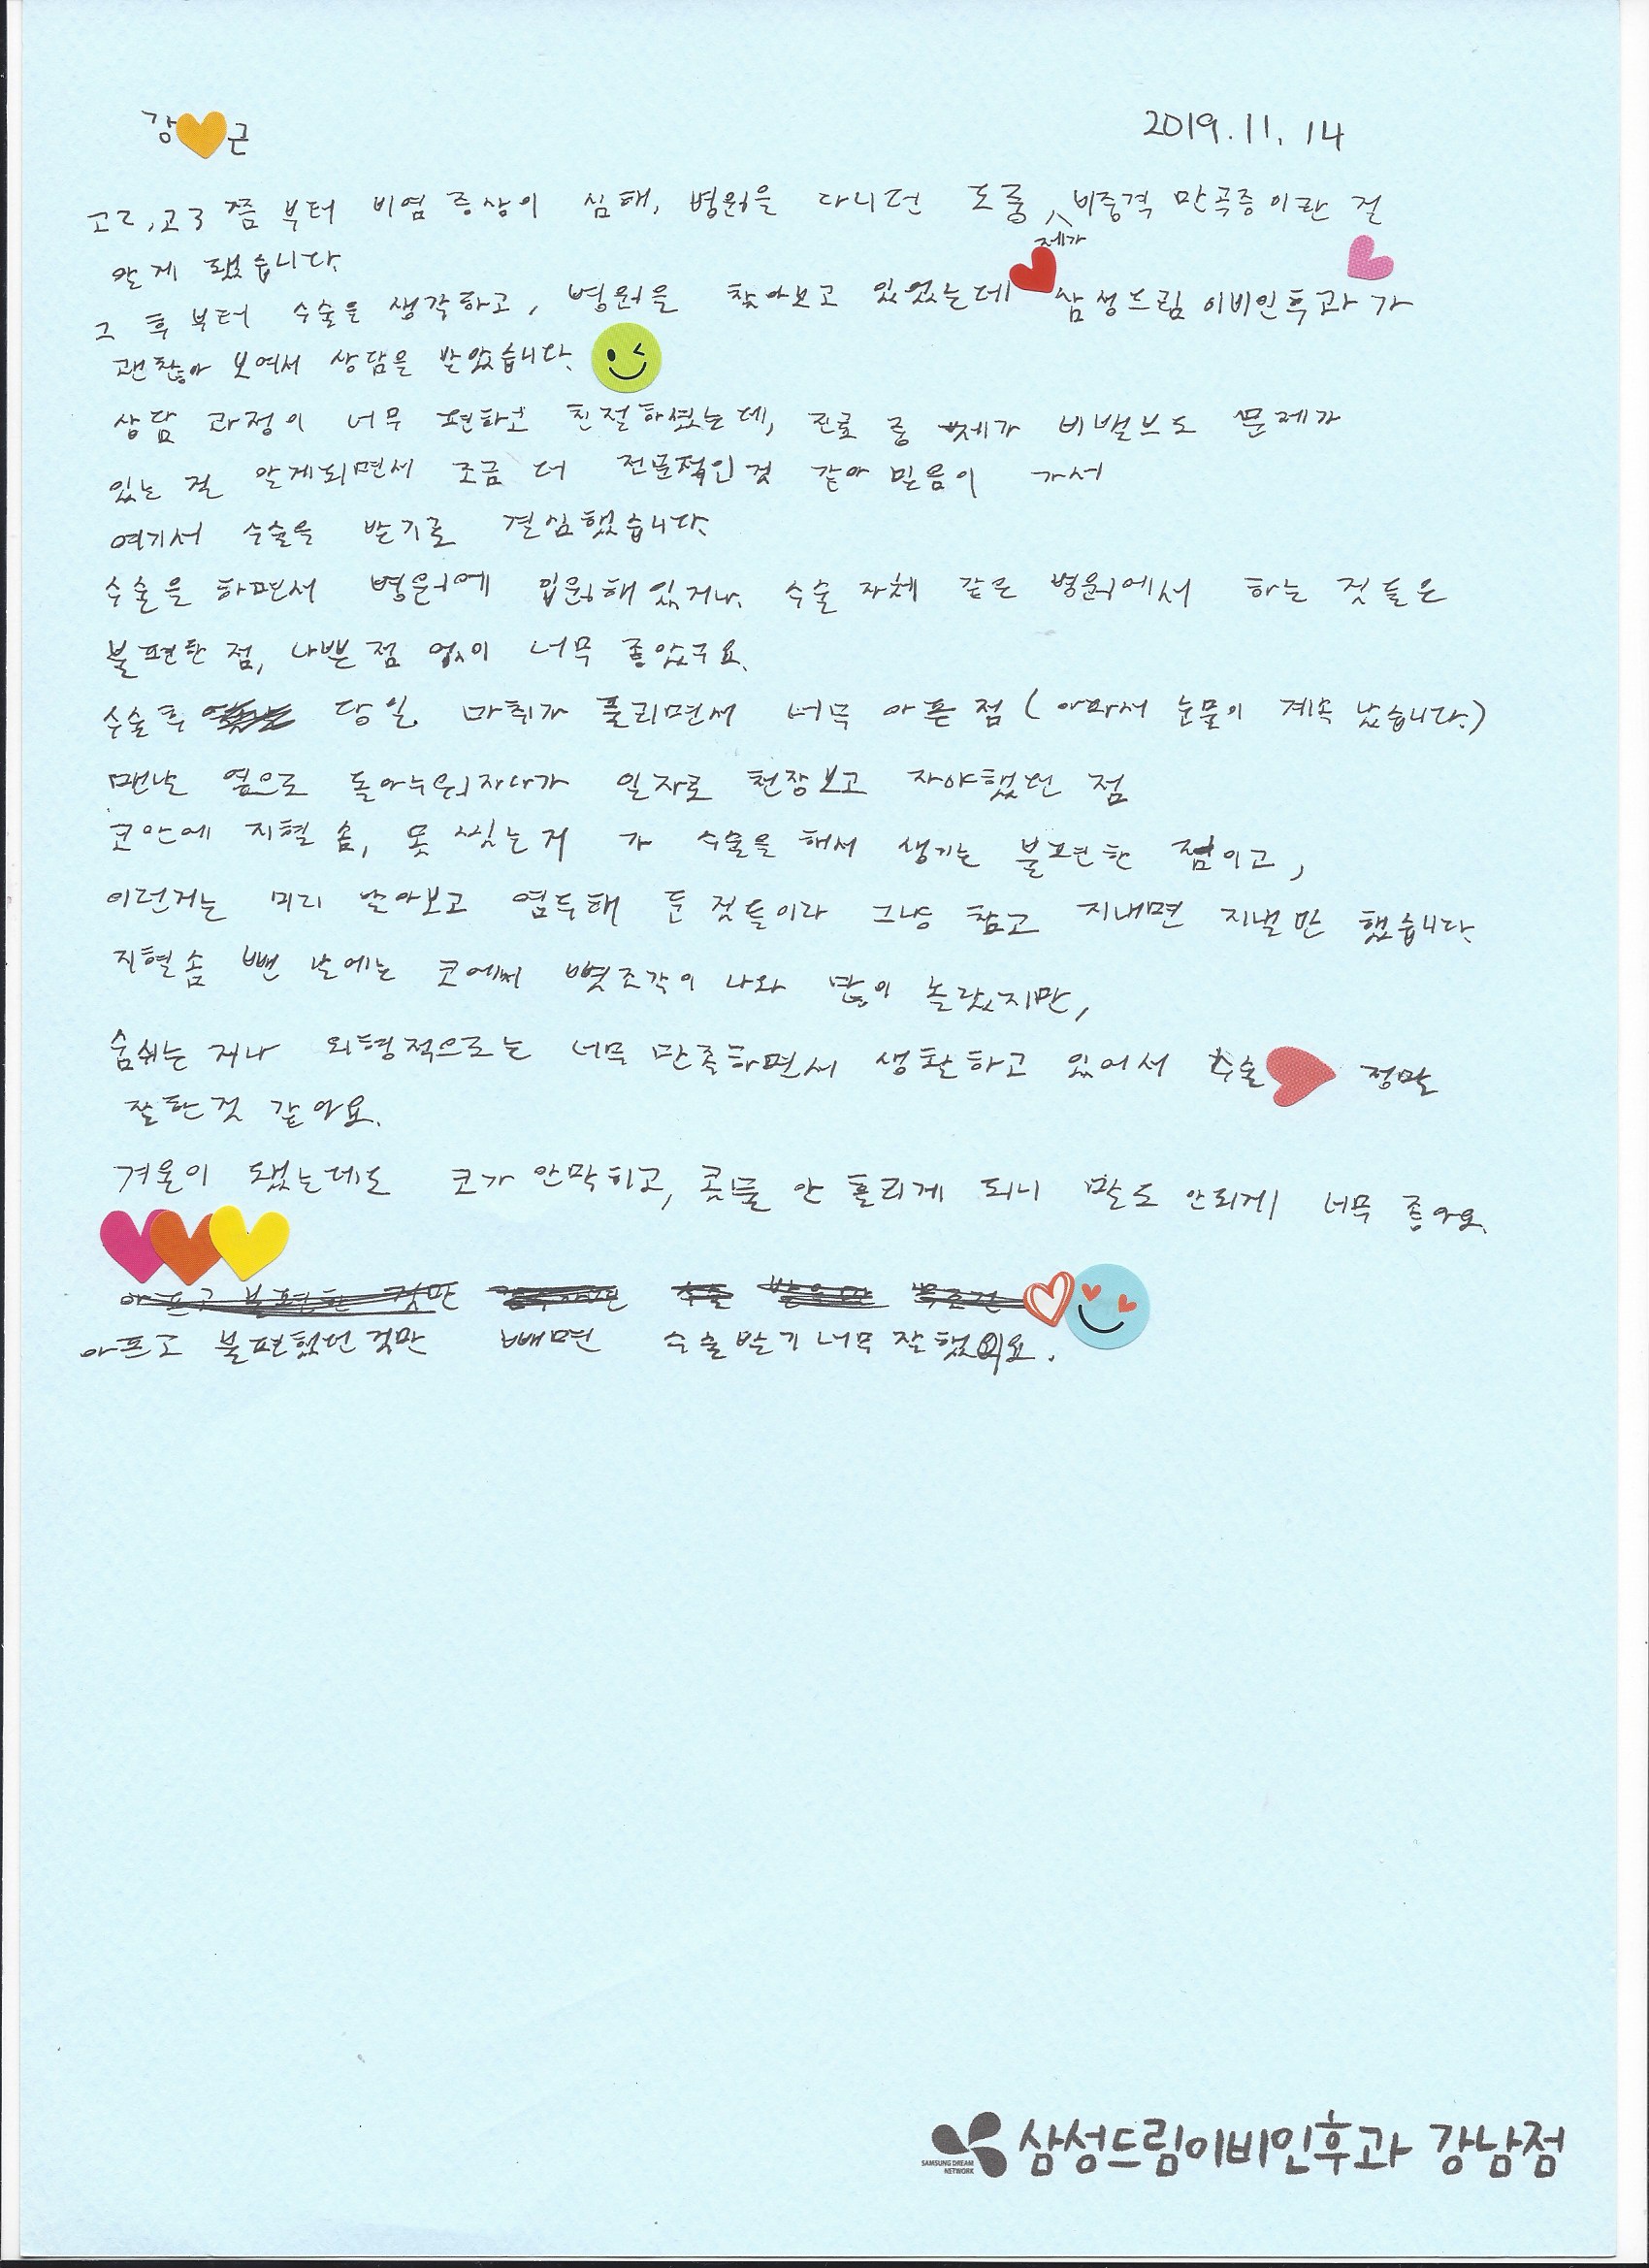 강 근
2019. 11. 14
고2, 고3 쯤 부터 비염 증상이 심해, 병원을 다니던 도중, 제가 비중격 만곡증이란 걸
알게 됐습니다.
그 후 부터 수술을 생각하고, 병원을 찾아보고 있었는데 삼성드림 이비인후과가
괜찮아 보여서 상담을 받았습니다.
상담 과정이 너무 편하고 친절하셨는데, 진료 중 제가 비밸브도 문제가
있는 걸 알게되면서 조금 더 전문적인것 같아 믿음이 가서
여기서 수술을 받기로 결심했습니다.
수술을 하면서 병원에 입원해 있거나. 수술 자체 같은 병원에서 하는 것들은
불편한 점, 나쁜 점 없이 너무 좋았구요.
수술 후 당일 마취가 풀리면서 너무 아픈 점 (아파서 눈물이 계속 났습니다.)
맨날 옆으로 돌아누워자다가 일자로 천장보고 자야했던 점
코안에 지혈 솜, 못 씻는거 가 수술을 해서 생기는 불편한 점이고,
이런거는 미리 알아보고 염두해 둔 것들이라 그냥 참고 지내면 지낼만 했습니다.
지혈솜 뺀 날에는 코에서 뼛조각이 나와 많이 놀랐지만,
숨쉬는 거나 외형적으로는 너무 만족하면서 생활하고 있어서 수술 정말
잘한것 같아요.
겨울이 됐는데도 코가 안막히고, 콧물 안 흘리게 되니 말도 안되게 너무 좋아요.
아프고 불편한 것만
아프고 불편했던것만 빼면 수술받기 너무 잘했어요.
SAMSUNG DREAM
NETWORK
삼성드림이비인후과 강남점